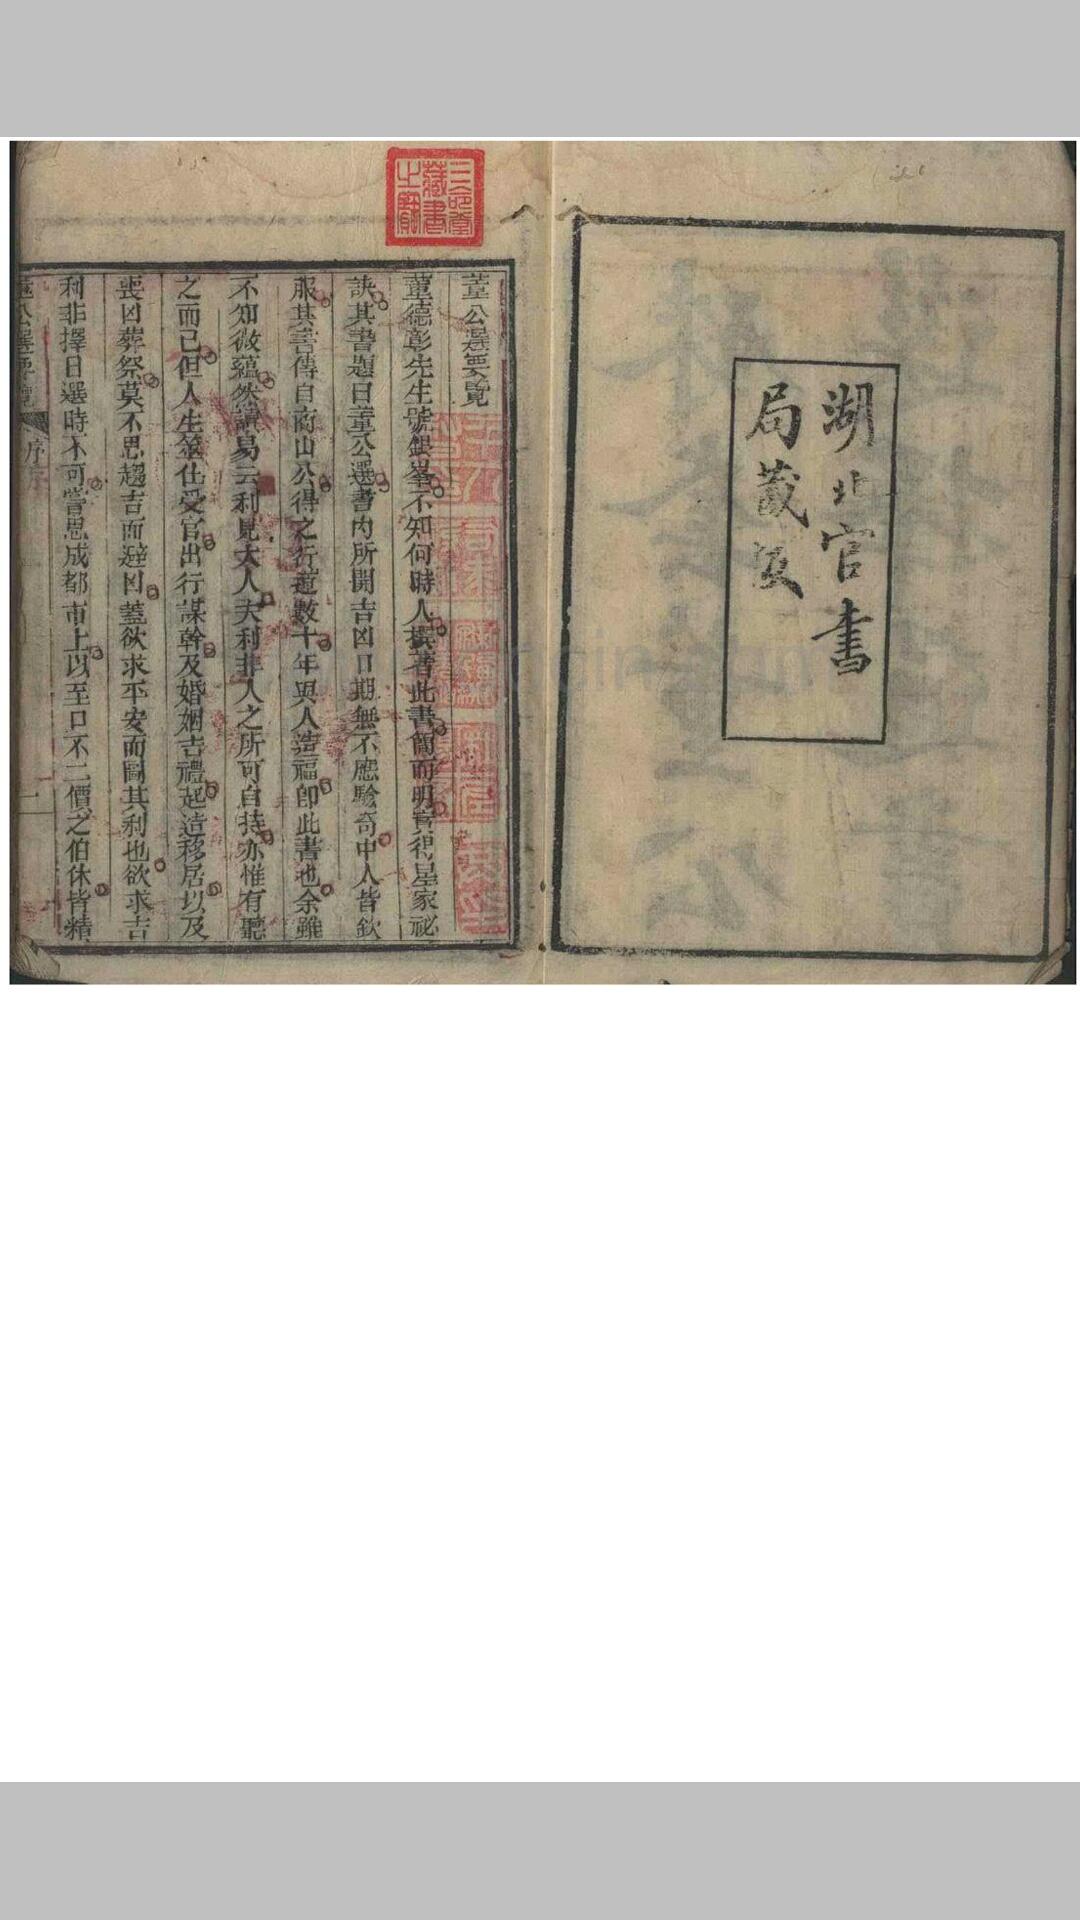 湖北官書
局藏板
三命堂
藏書
之寶
董公選要覽
董德彰先生號銀峯不知何時人撰著此書簡而明實得星家祕
訣其書題曰董公選書內所開吉凶日期無不應驗奇中人皆欽
服其書傳自商山公得之行道數十年與人造福卽此書也余雖
不知微蘊然讀易云利見大人夫利非人之所可自持亦惟有聽
之而已但人生筮仕受官出行謀幹及婚姻吉禮起造移居以及
喪凶葬祭莫不思趨吉而避凶蓋欲求平安而圖其利也欲求吉
利非擇日選時不可嘗思成都市上以至口不二價之伯休皆精
董公選要覽
序
一